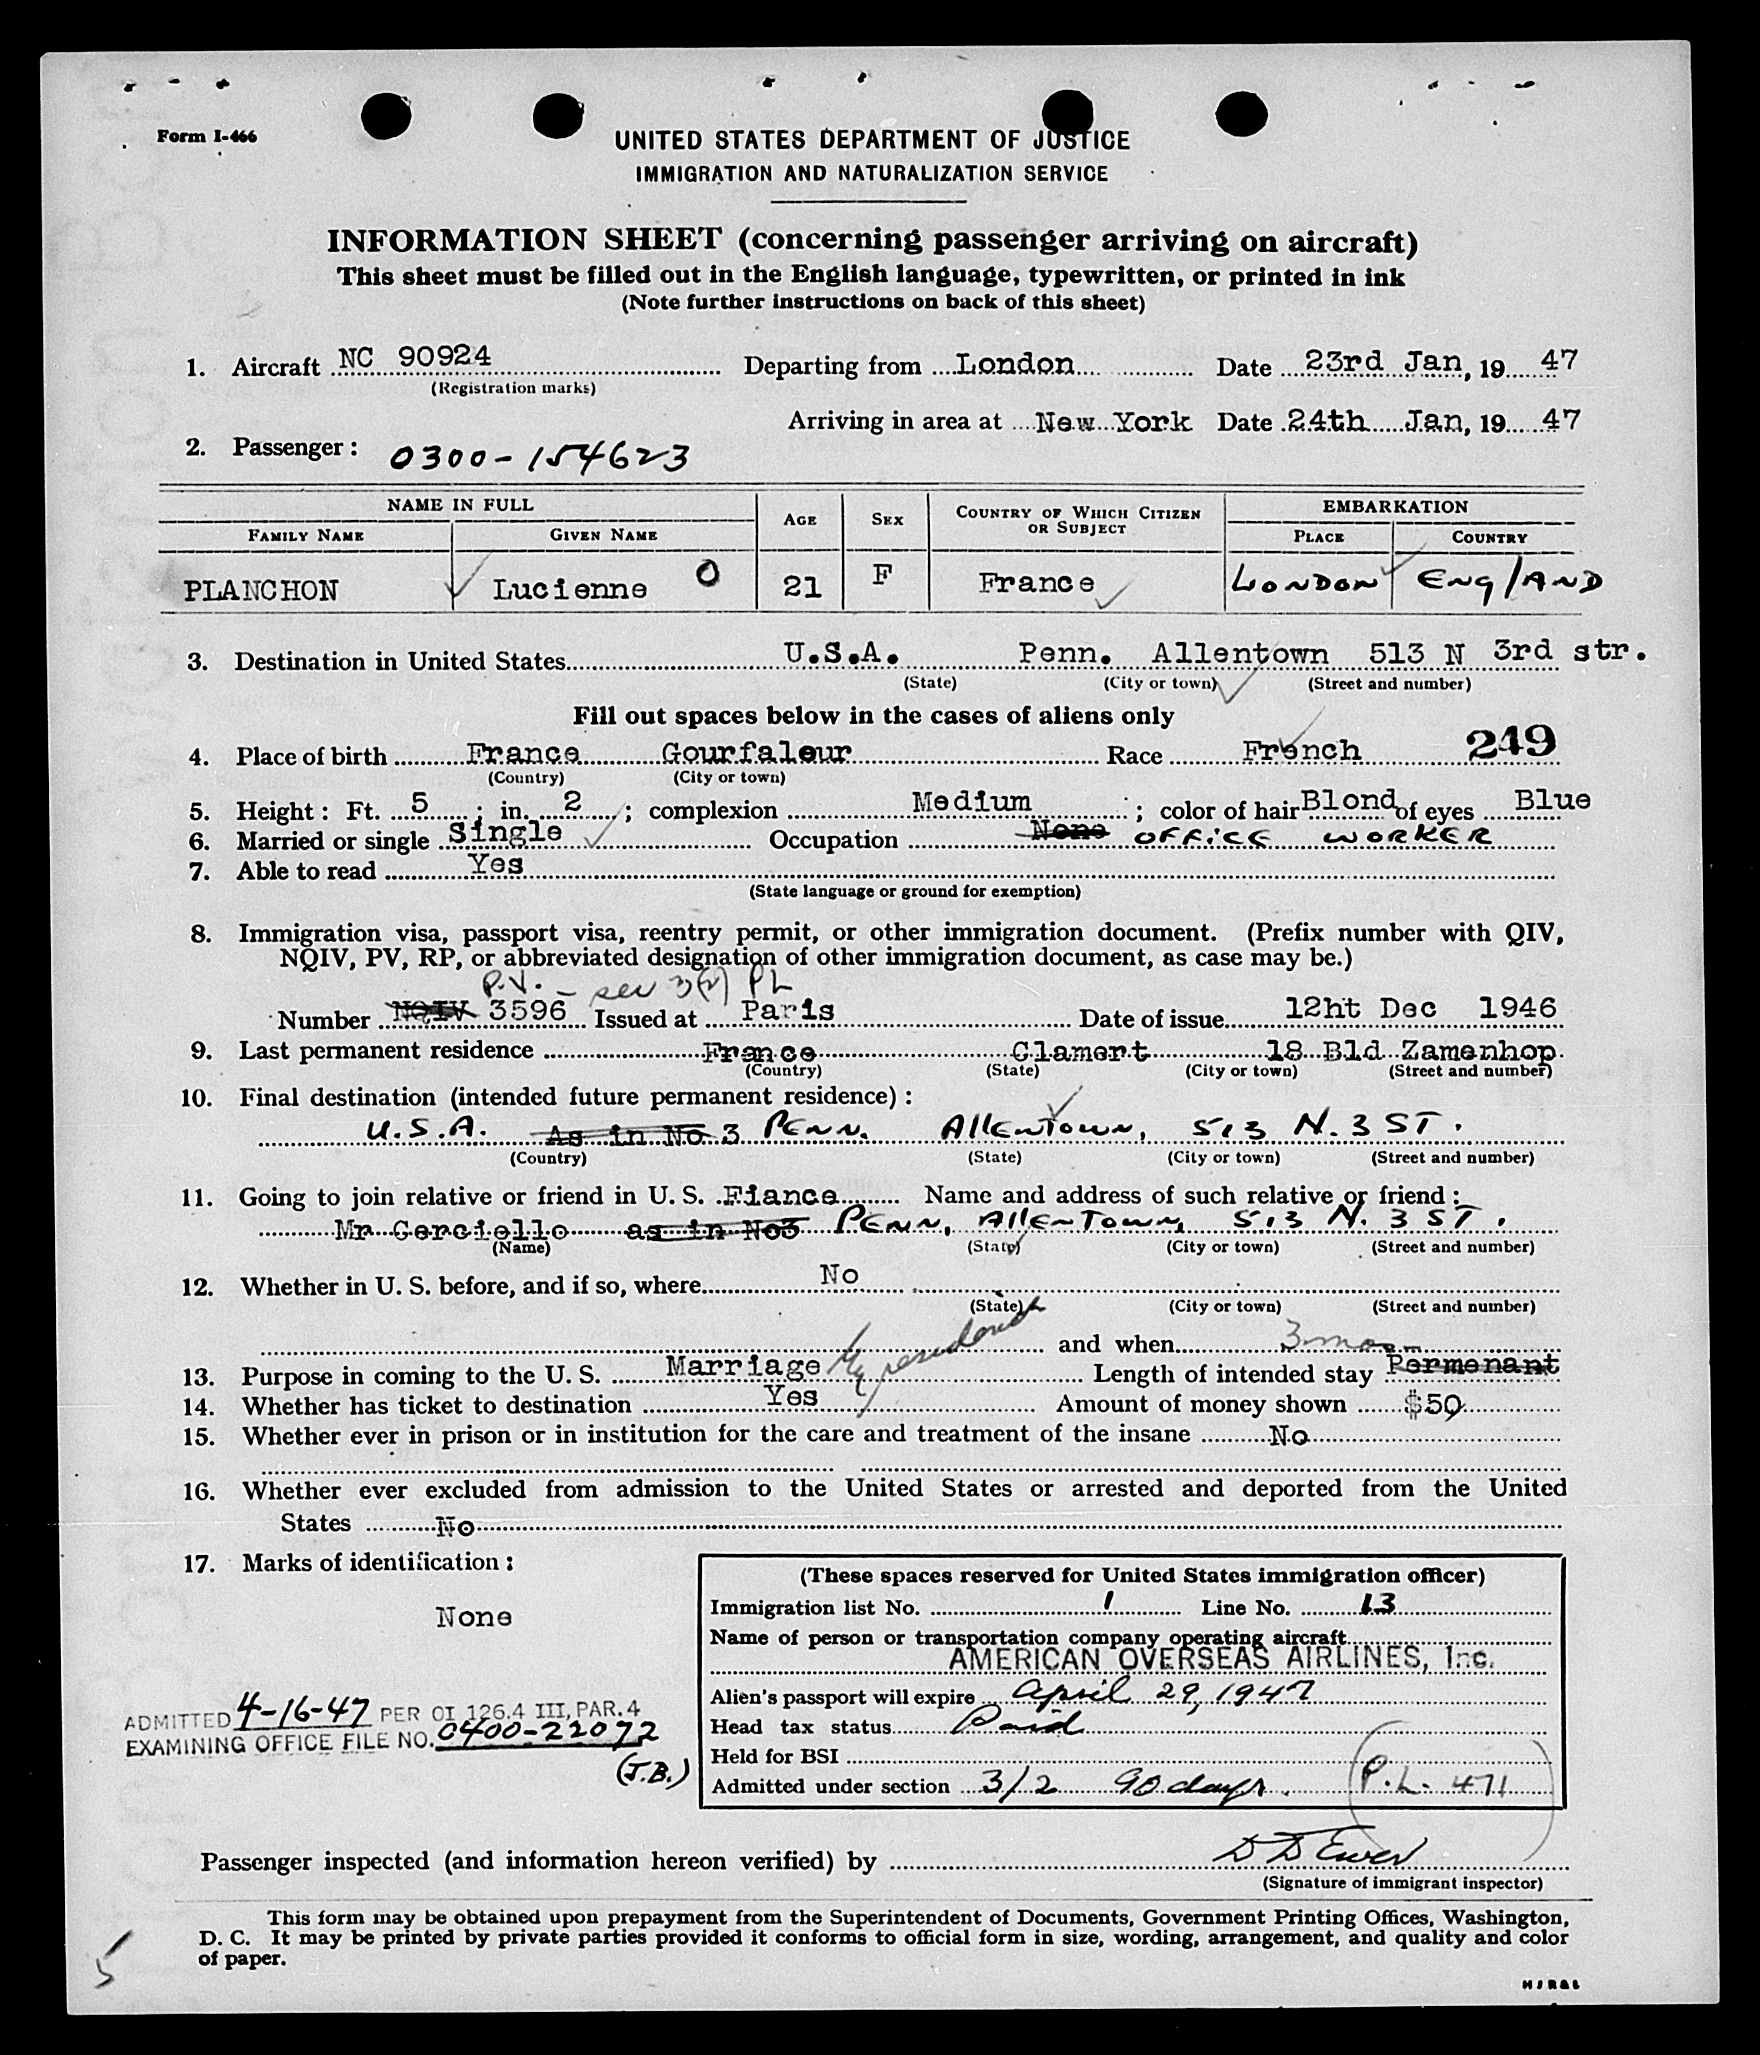 Form I-466
UNITED STATES DEPARTMENT OF JUSTICE
IMMIGRATION AND NATURALIZATION SERVICE
INFORMATION SHEET (concerning passenger arriving on aircraft)
This sheet must be filled out in the English language, typewritten, or printed in ink
(Note further instructions on back of this sheet)
1. Aircraft NC 90924 Departing from London Date 23rd Jan, 19 47
(Registration marks)
Arriving in area at New York Date 24th Jan, 19 47
2. Passenger: 0300-154623
NAME IN FULL AGE SEX COUNTRY OF WHICH CITIZEN OR SUBJECT EMBARKATION
FAMILY NAME GIVEN NAME PLACE COUNTRY
PLANCHON Lucienne O 21 F France LONDON ENGLAND
3. Destination in United States U.S.A. Penn. Allentown 513 N 3rd str.
(State) (City or town) (Street and number)
Fill out spaces below in the cases of aliens only
4. Place of birth France Gourfaleur Race French 249
(Country) (City or town)
5. Height: Ft. 5; in. 2; complexion Medium; color of hair Blond of eyes Blue
6. Married or single Single Occupation None OFFICE WORKER
7. Able to read Yes
(State language or ground for exemption)
8. Immigration visa, passport visa, reentry permit, or other immigration document. (Prefix number with QIV,
NQIV, PV, RP, or abbreviated designation of other immigration document, as case may be.)
P.V. - sec 3(2) PL
Number NQIV 3596 Issued at Paris Date of issue 12ht Dec 1946
9. Last permanent residence France Clamart 18 Bld Zamenhop
(Country) (State) (City or town) (Street and number)
10. Final destination (intended future permanent residence):
U.S.A. As in No 3 PENN. ALLENTOWN, 513 N. 3 ST.
(Country) (State) (City or town) (Street and number)
11. Going to join relative or friend in U. S. Fiance Name and address of such relative or friend:
Mr Cerciello as in No3 PENN, ALLENTOWN, 513 N. 3 ST.
(Name) (State) (City or town) (Street and number)
12. Whether in U. S. before, and if so, where No
(State) (City or town) (Street and number)
and when 3 mos
13. Purpose in coming to the U. S. Marriage Length of intended stay Permenant
14. Whether has ticket to destination Yes Amount of money shown $50
15. Whether ever in prison or in institution for the care and treatment of the insane No
16. Whether ever excluded from admission to the United States or arrested and deported from the United
States No
17. Marks of identification:
None
(These spaces reserved for United States immigration officer)
Immigration list No. 1 Line No. 13
Name of person or transportation company operating aircraft
AMERICAN OVERSEAS AIRLINES, Inc.
Alien's passport will expire April 29, 1947
Head tax status Paid
Held for BSI
Admitted under section 3/2 90 days. P.L. 471
ADMITTED 4-16-47 PER OI 126.4 III, PAR. 4
EXAMINING OFFICE FILE NO. 0400-22072
(J.B.)
Passenger inspected (and information hereon verified) by D D Ewer
(Signature of immigrant inspector)
This form may be obtained upon prepayment from the Superintendent of Documents, Government Printing Offices, Washington,
D. C. It may be printed by private parties provided it conforms to official form in size, wording, arrangement, and quality and color
of paper.
5